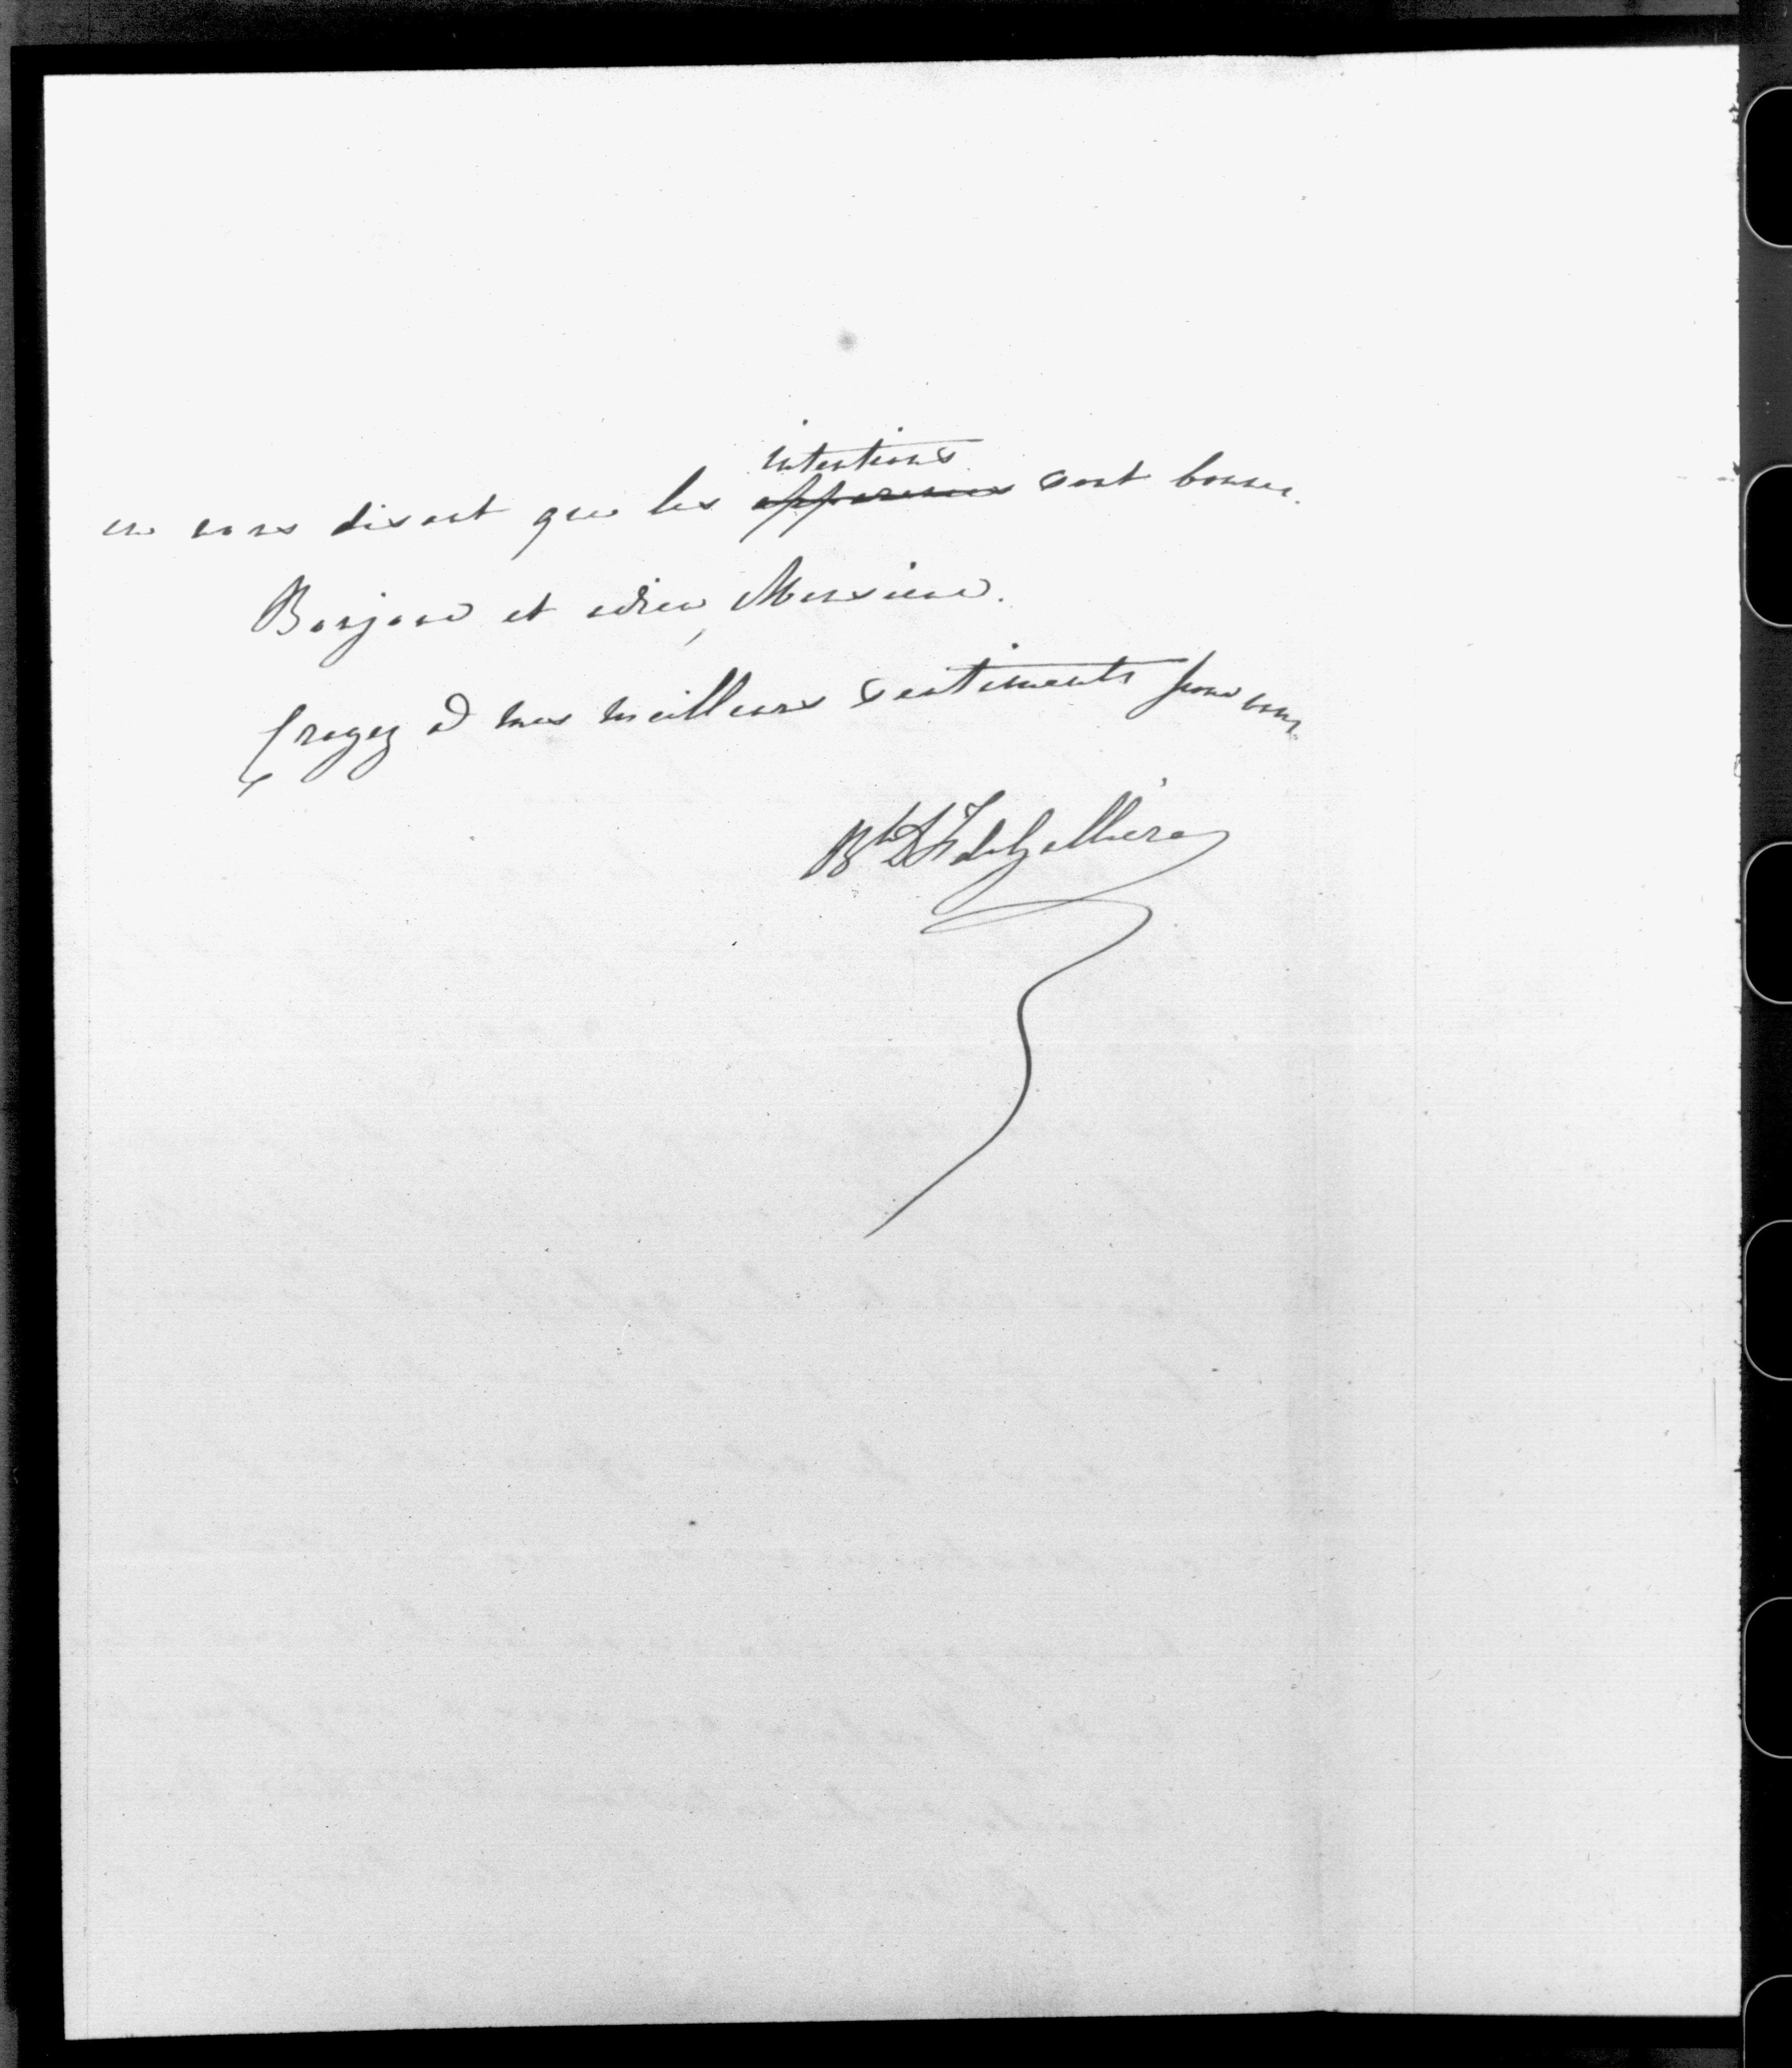 en vous disant que les intentions sont bonnes.
Bonjour et adieu, Monsieur.
Croyez à mes meilleurs sentiments pour vous.